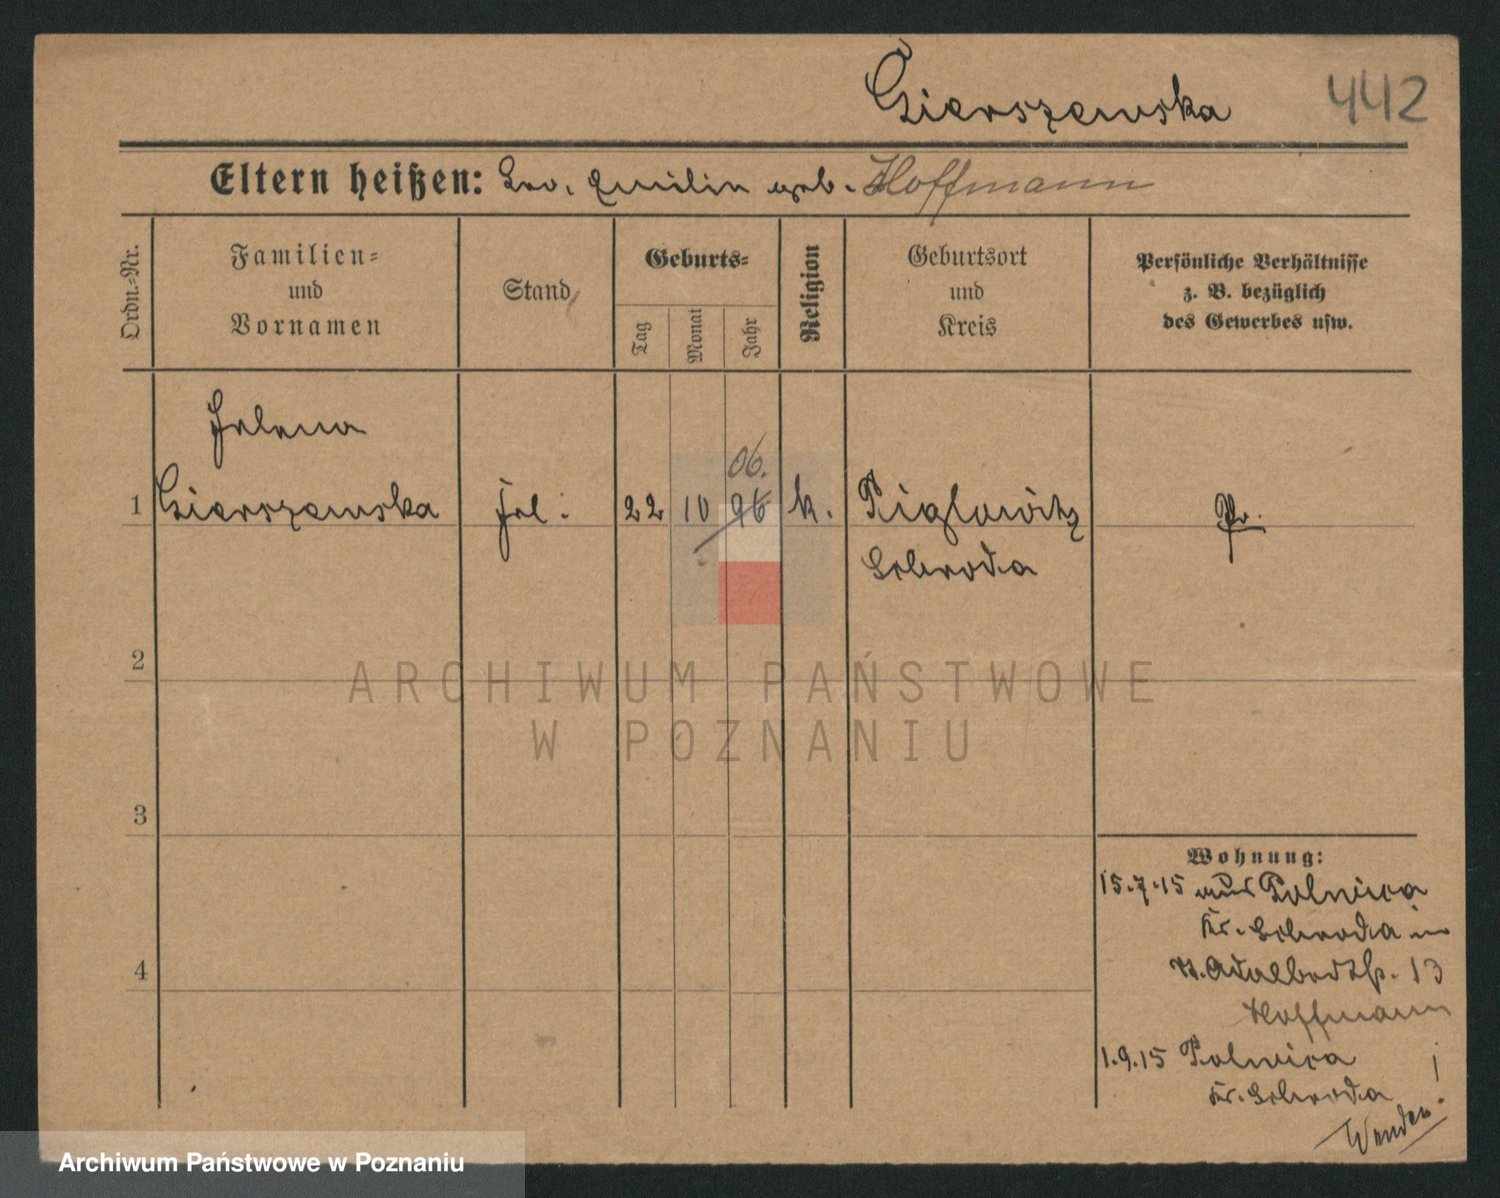 Gierszewska 442
Eltern heißen: Leo, Emilie geb. Hoffmann
Ordn.-Nr.
Familien-
und
Vornamen
Stand
Geburts-
Tag
Monat
Jahr
Religion
Geburtsort
und
Kreis
Persönliche Verhältnisse
z. B. bezüglich
des Gewerbes usw.
Helena
06.
1 Gierszewska frl: 22 10 96 k. Piglowitz Pr.
Schroda
2
ARCHIWUM PAŃSTWOWE
W POZNANIU
3
Wohnung:
15.7.15 aus Polwica
Kr. Schroda in
St. Adalbertstr. 13
Hoffmann
4
1.9.15 Polwica
Kr. Schroda
Wenden!
Archiwum Państwowe w Poznaniu